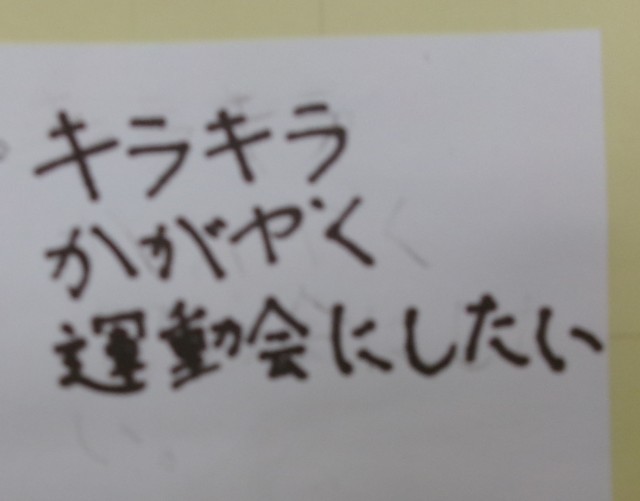 キラキラ
かがやく
運動会にしたい